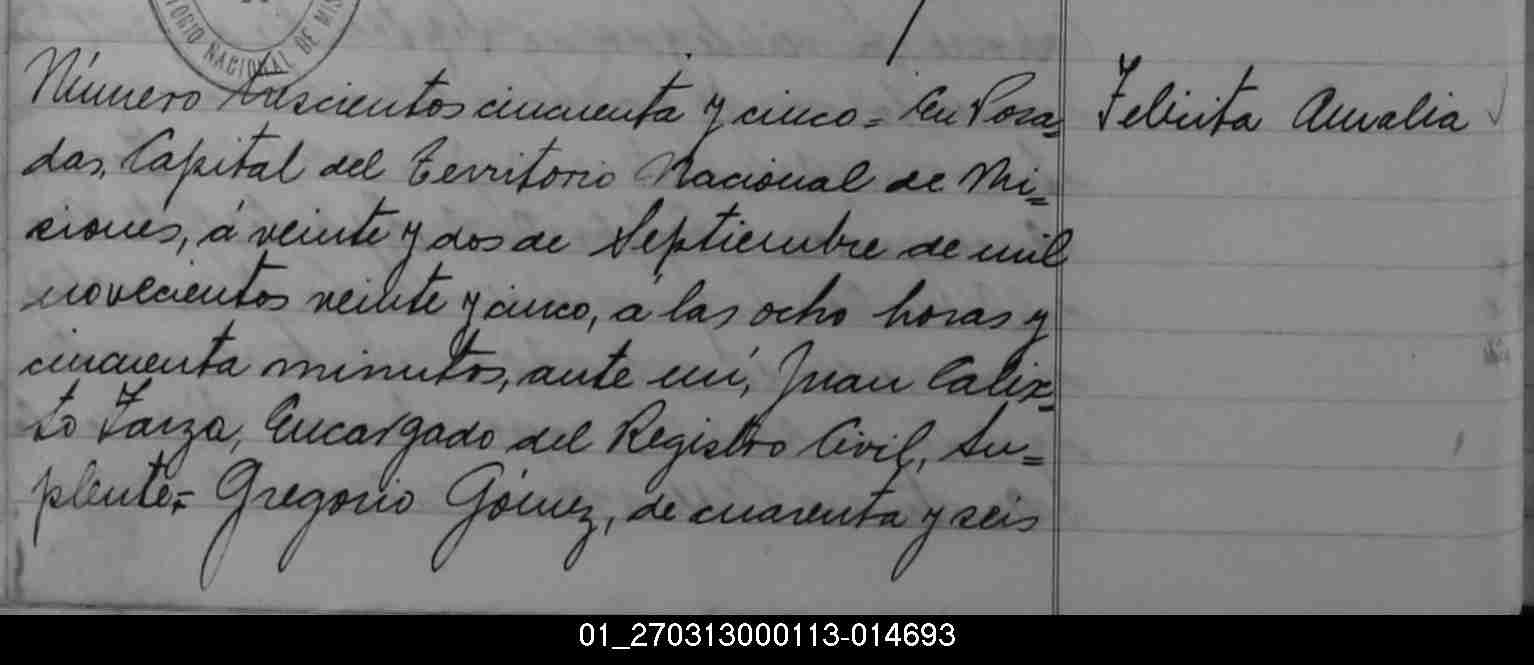 TORIO NACIONAL DE MIS
Número trescientos cincuenta y cinco = En Posa=
das, Capital del Territorio Nacional de Mi=
siones, á veinte y dos de Septiembre de mil
novecientos veinte y cinco, á las ocho horas y
cincuenta minutos, ante mí, Juan Calix=
to Zarza, Encargado del Registro Civil, Su=
plente.= Gregorio Gómez, de cuarenta y seis
Felicita Amalia
01_270313000113-014693